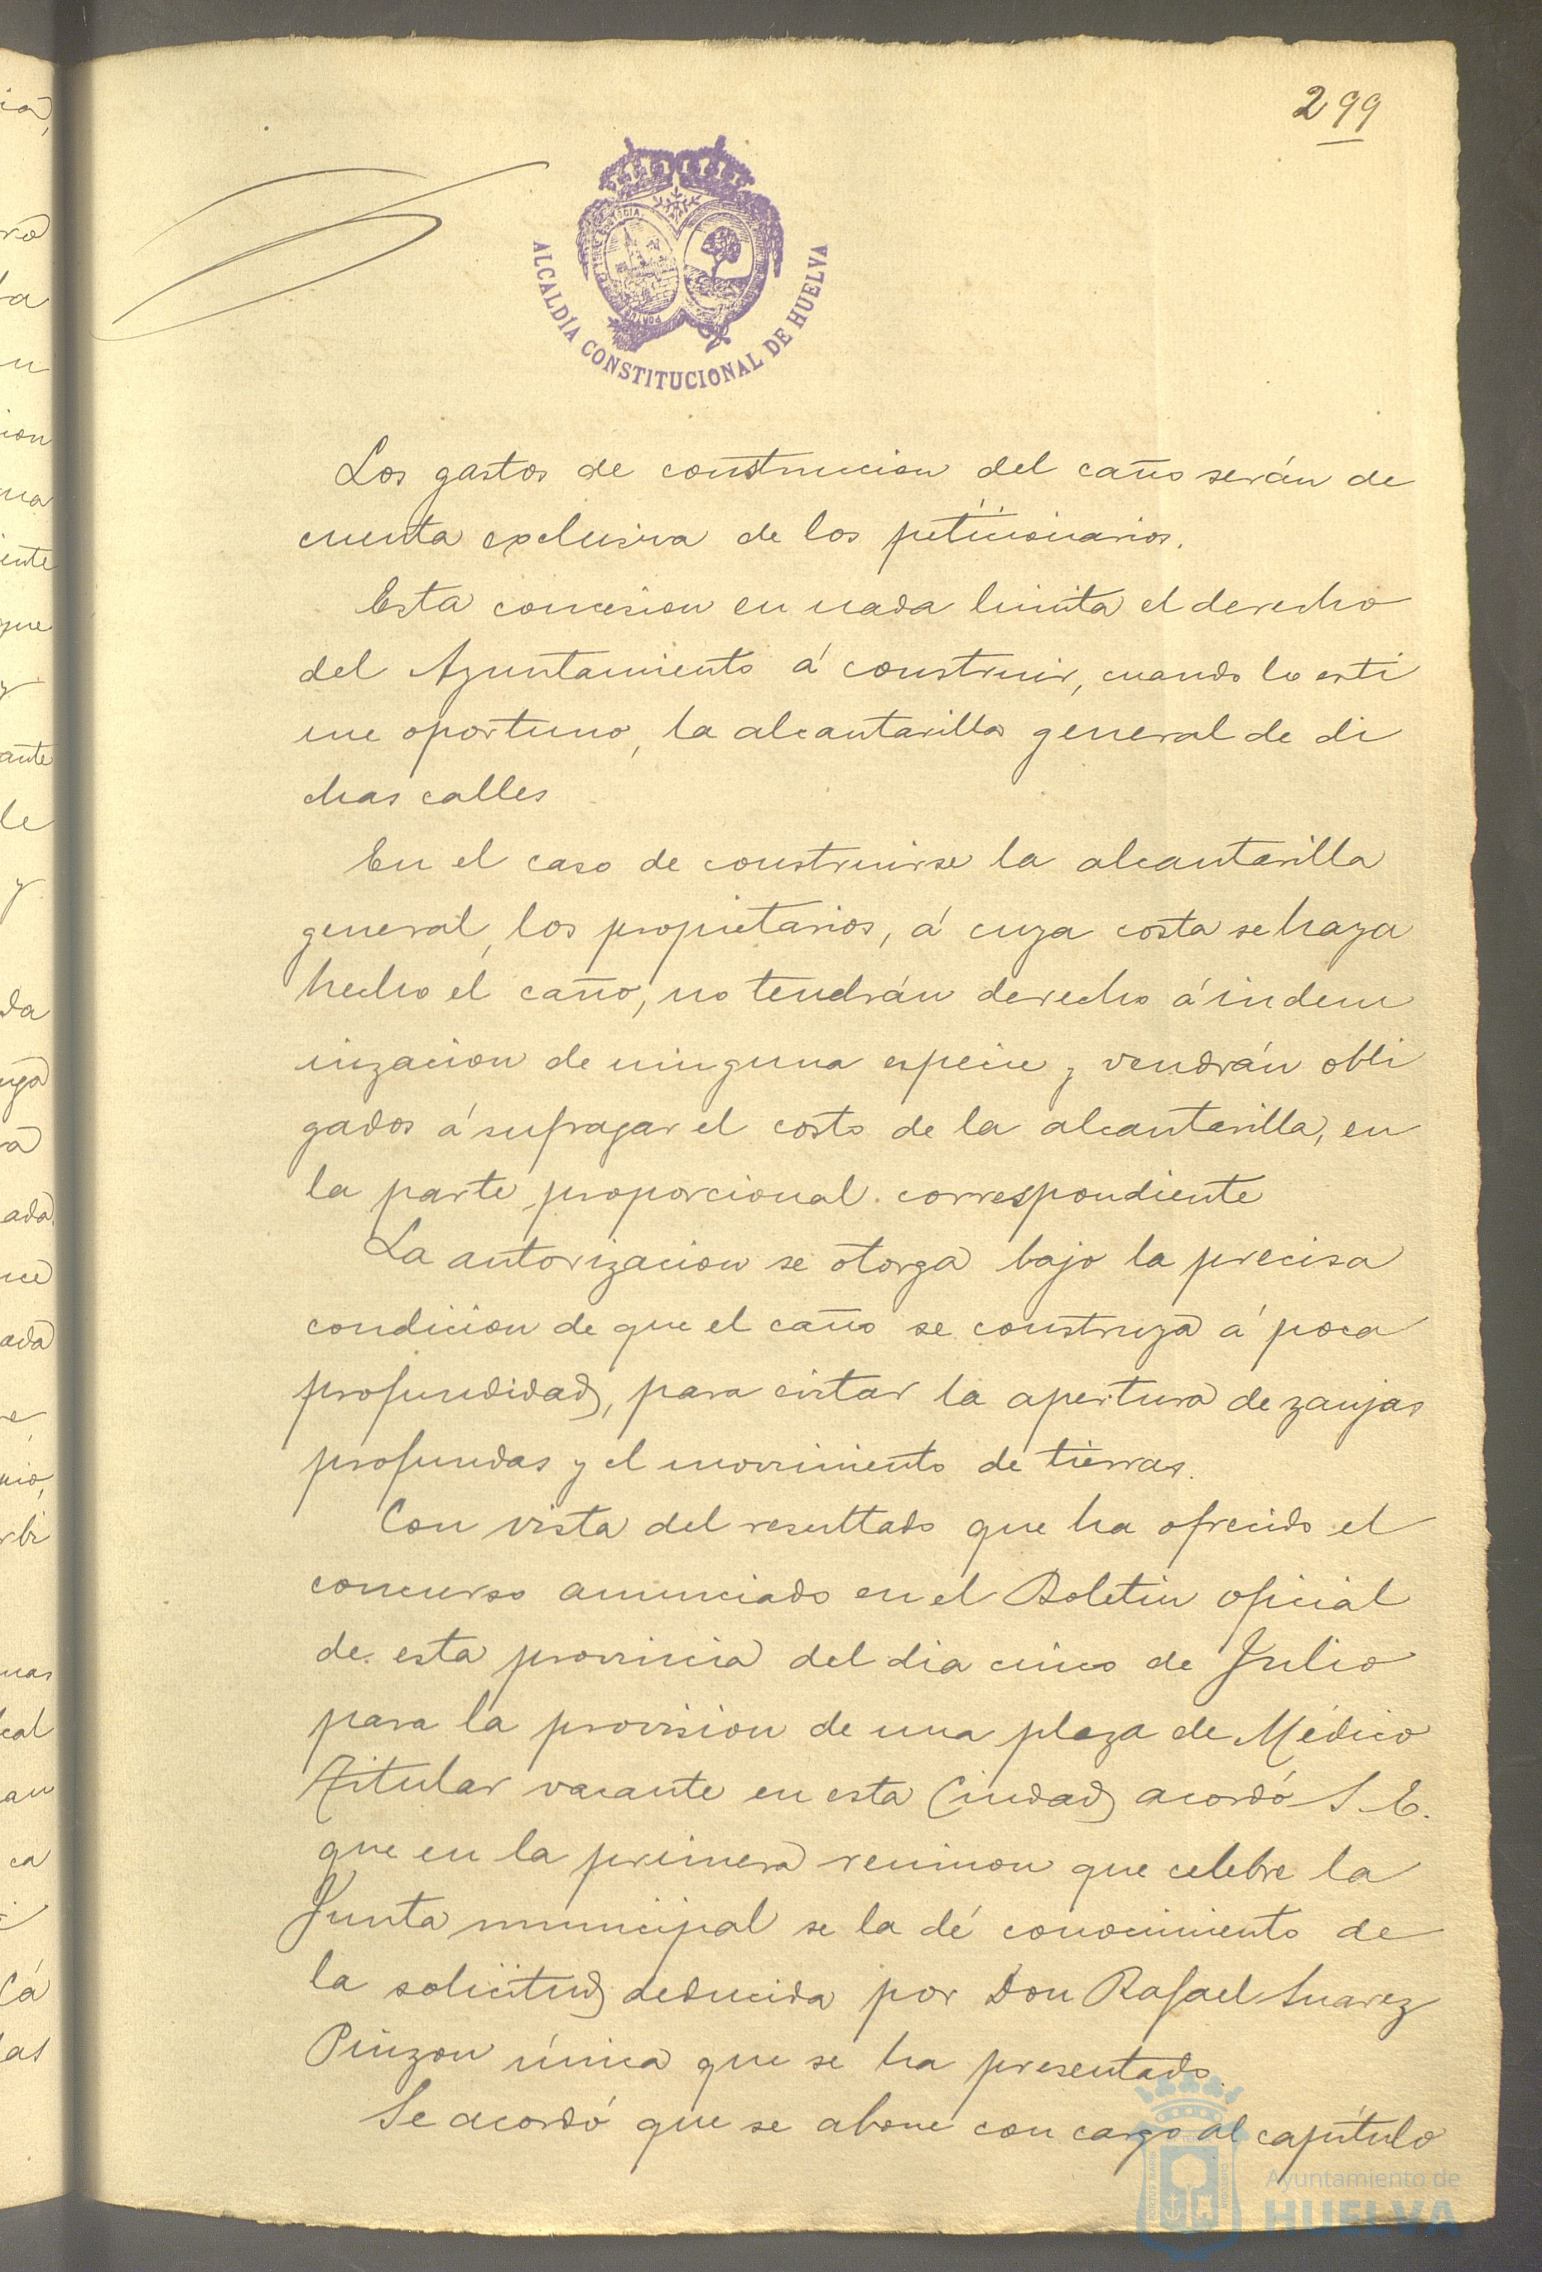 299
ALCALDÍA CONSTITUCIONAL DE HUELVA
Los gastos de construccion del caño serán de
cuenta exclusiva de los peticionarios.
Esta concesion en nada limita el derecho
del Ayuntamiento á construir, cuando lo esti
me oportuno, la alcantarilla general de di
chas calles
En el caso de construirse la alcantarilla
general, los propietarios, á cuya costa se haya
hecho el caño, no tendrán derecho á indem
nizacion de ninguna especie y vendrán obli
gados á sufragar el costo de la alcantarilla, en
la parte proporcional correspondiente
La autorizacion se otorga bajo la precisa
condicion de que el caño se construya á poca
profundidad, para evitar la apertura de zanjas
profundas y el movimiento de tierras.
Con vista del resultado que ha ofrecido el
concurso anunciado en el Boletin oficial
de esta provincia del dia cinco de Julio
para la provision de una plaza de Médico
Titular vacante en esta Ciudad acordó S. E.
que en la primera reunion que celebre la
Junta municipal se la dé conocimiento de
la solicitud deducida por Don Rafael Suarez
Pinzon única que se ha presentado.
Se acordó que se abone con cargo al capítulo
Ayuntamiento de
HUELVA